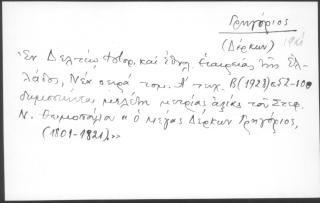 Γρηγόριος
(Δέρκων)
"Ἐν Δελτίῳ Ἱστορ. καὶ ἐθν. ἑταιρείας τῆς Ἑλ-
λάδος, Νέα σειρά τομ. Α' τευχ. Β (1928) σ. 52-100
δημοσιεύεται μελέτη μετρίας ἀξίας τοῦ Στεφ.
Ν. Θωμοπούλου "ὁ μέγας Δέρκων Γρηγόριος,
(1801-1821)."